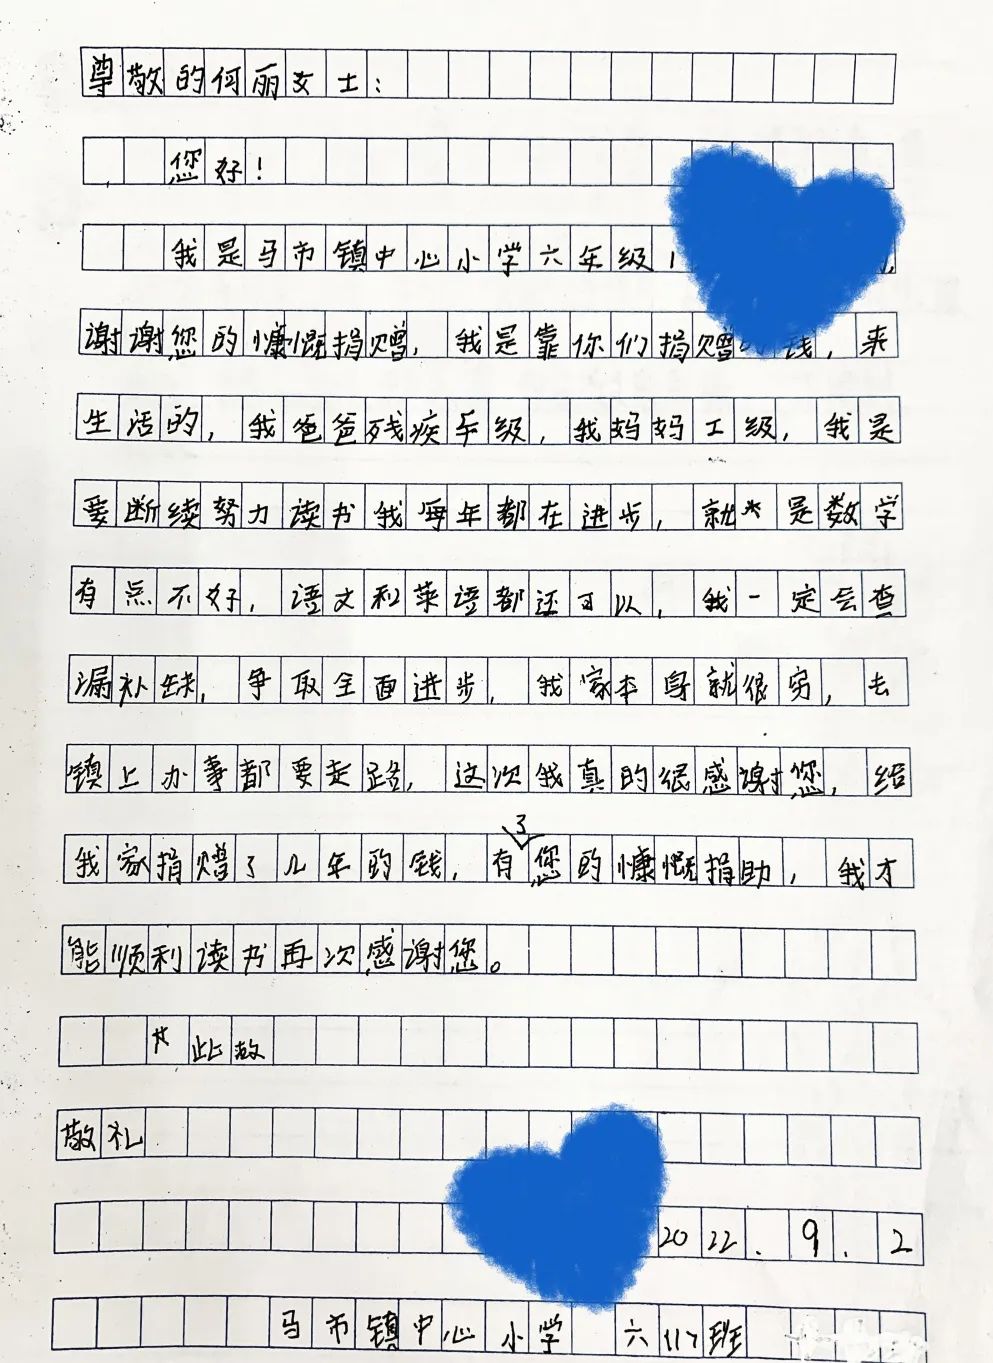 尊敬的何丽女士：
您好！
我是马市镇中心小学六年级1
谢谢您的慷慨捐赠，我是靠你们捐赠的钱，来
生活的，我爸爸残疾手级，我妈妈工级，我是
要断续努力读书我每年都在进步，就是数学
有点不好，语文和英语都还可以，我一定会查
漏补缺，争取全面进步，我家本身就很穷，去
镇上办事都要走路，这次我真的很感谢您，给
我家捐赠了几年的钱，有了您的慷慨捐助，我才
能顺利读书再次感谢您。
此致
敬礼
2022.9.2
马市镇中心小学 六(1)班